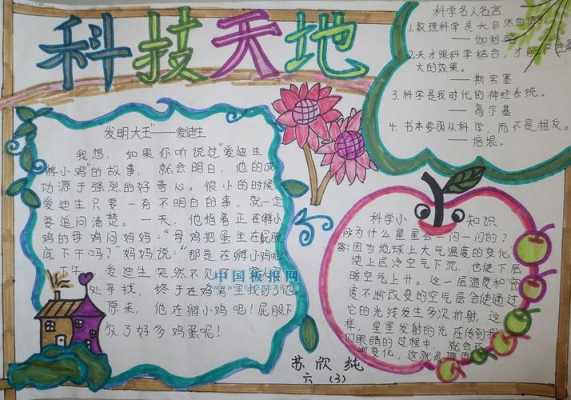 科技天地
发明大王"——爱迪生
我想，如果你听说过"爱迪生
孵小鸡"的故事，就会明白，他的成
功源于强烈的好奇心。很小的时候
爱迪生只要一有不明白的事，就一定
要追问清楚。一天，他指着正在孵小
鸡的母鸡问妈妈："母鸡把蛋坐在屁股
底下干吗？"妈妈说："那是在孵小鸡
爱迪生突然不见
处寻找，终于在鸡窝里找到了他
原来，他在孵小鸡呢！屁股下
放了好多鸡蛋呢！
中国板报网
科学名人名言
1.数理科学是大自然
——伽利略
2.天才跟科学结合，才能
大的效果。
——斯宾塞
3.科学是我时代的神经系统。
——高尔基
4.书本要随从科学，而不是相反。
——培根。
科学小 知识
问为什么星星会一闪一闪的？
答:因为地球上大气温度的变化
使上层冷空气下沉，也使下层
暖空气上升。这一层温度和密
度不断改变的空气层会使通过
它的光线发生多次折射，这
样，星星发射的光在传到
们眼睛的过程中，就会
变化，这就
苏欣纯
六（3）